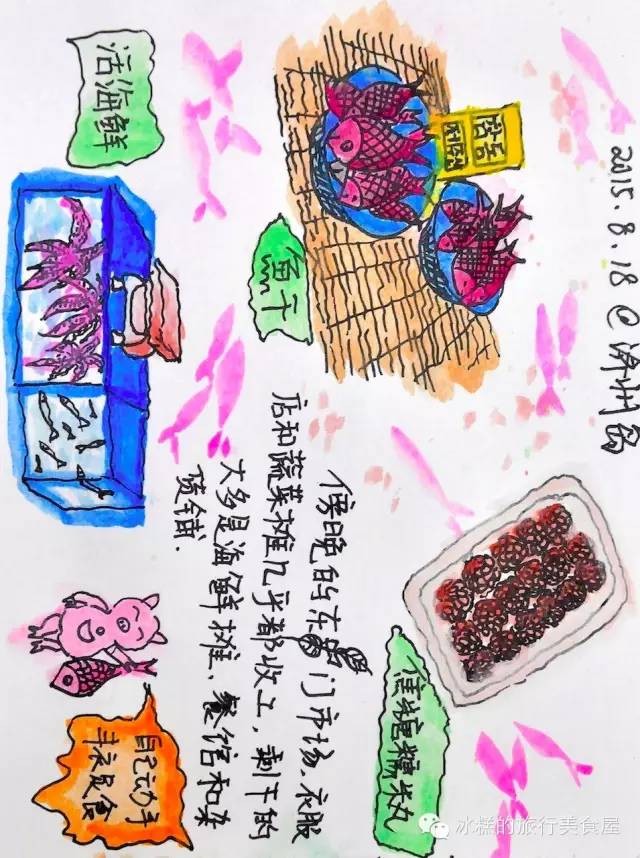 2015.8.18 @济州岛
鱼干
活海鲜
傍晚的东门市场、衣服
店和蔬菜摊几乎都收工，剩下的
大多是海鲜摊、餐馆和杂
货铺.
焦糖糯米丸
自己动手
丰衣足食
冰糕的旅行美食屋